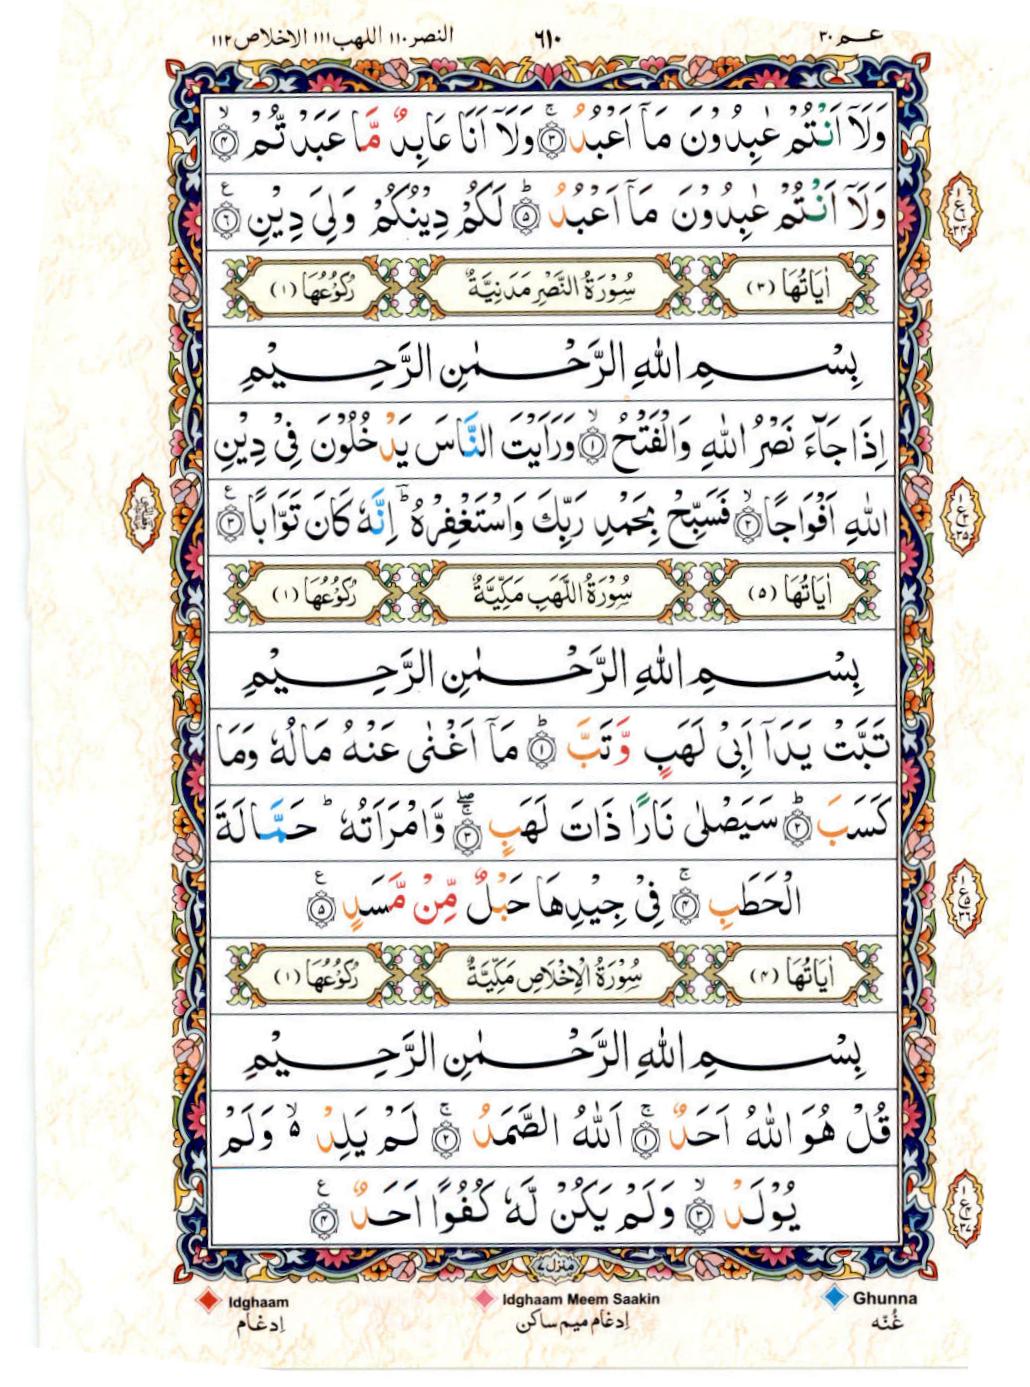 عـم ٣٠
٦١٠
النصر ١١٠ اللهب ١١١ الاخلاص ١١٢
وَلَاۤ اَنْتُمْ عٰبِدُوْنَ مَاۤ اَعْبُدُ ۚ﴿۳﴾ وَلَاۤ اَنَا عَابِدٌ مَّا عَبَدْتُّمْ ۙ﴿۴﴾
وَلَاۤ اَنْتُمْ عٰبِدُوْنَ مَاۤ اَعْبُدُ ؕ﴿۵﴾ لَكُمْ دِيْنُكُمْ وَلِىَ دِيْنِ ﴿۶﴾ ع
اٰيَاتُهَا (۳) سُوْرَةُ النَّصْرِ مَدَنِيَّةٌ رُكُوْعُهَا (۱)
بِسْمِ اللّٰهِ الرَّحْمٰنِ الرَّحِيْمِ
اِذَا جَآءَ نَصْرُ اللّٰهِ وَالْفَتْحُ ۙ﴿۱﴾ وَرَاَيْتَ النَّاسَ يَدْخُلُوْنَ فِىْ دِيْنِ
اللّٰهِ اَفْوَاجًا ۙ﴿۲﴾ فَسَبِّحْ بِحَمْدِ رَبِّكَ وَاسْتَغْفِرْهُ ؕ اِنَّهٗ كَانَ تَوَّابًا ﴿۳﴾ ع
اٰيَاتُهَا (۵) سُوْرَةُ اللَّهَبِ مَكِّيَّةٌ رُكُوْعُهَا (۱)
بِسْمِ اللّٰهِ الرَّحْمٰنِ الرَّحِيْمِ
تَبَّتْ يَدَاۤ اَبِىْ لَهَبٍ وَّتَبَّ ؕ﴿۱﴾ مَاۤ اَغْنٰى عَنْهُ مَالُهٗ وَمَا
كَسَبَ ؕ﴿۲﴾ سَيَصْلٰى نَارًا ذَاتَ لَهَبٍ ۖۚ﴿۳﴾ وَّامْرَاَتُهٗ ؕ حَمَّالَةَ
الْحَطَبِ ۚ﴿۴﴾ فِىْ جِيْدِهَا حَبْلٌ مِّنْ مَّسَدٍ ﴿۵﴾ ع
اٰيَاتُهَا (۴) سُوْرَةُ الْاِخْلَاصِ مَكِّيَّةٌ رُكُوْعُهَا (۱)
بِسْمِ اللّٰهِ الرَّحْمٰنِ الرَّحِيْمِ
قُلْ هُوَ اللّٰهُ اَحَدٌ ۚ﴿۱﴾ اَللّٰهُ الصَّمَدُ ۚ﴿۲﴾ لَمْ يَلِدْ ۙ۬ وَلَمْ
يُوْلَدْ ۙ﴿۳﴾ وَلَمْ يَكُنْ لَّهٗ كُفُوًا اَحَدٌ ﴿۴﴾ ع
منزل ٧
Idghaam Idghaam Meem Saakin Ghunna
اِدغام اِدغام میم ساکن غُنّه